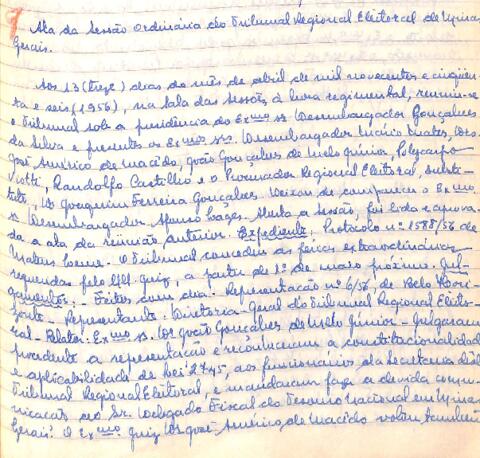 9
Ata da Sessão Ordinária do Tribunal Regional Eleitoral de Minas
Gerais.
Aos 13 (treze) dias do mês de abril de mil novecentos e cinqüen-
ta e seis (1956), na sala das Sessões, à hora regimental, reuniu-se
o Tribunal sob a presidência do Exmo sr. Desembargador Gonçalves
da Silva e presentes os Exmos srs. Desembargador Márcio Ducates, Drs.
José Américo de Macêdo, João Gonçalves de Melo Júnior, Polycarpo
Viotti, Randolfo Castilho e o Procurador Regional Eleitoral, substi-
tuto, Dr. Joaquim Ferreira Gonçalves. Deixou de comparecer o Exmo
sr. Desembargador Afonso Lages. Aberta a sessão, foi lida e aprova-
da a ata da reunião anterior. Expediente: Protocolo nº 1588/56 de
Mateus Leme. O Tribunal concedeu as férias extraordinárias
requeridas pelo MM. juiz, a partir de 1º de maio próximo. Jul-
gamentos: - Feitos com dia. - Representação nº 6/56, de Belo Hori-
zonte - Representante: Diretoria-Geral do Tribunal Regional Eleito-
ral - Relator: Exmo sr. Dr. João Gonçalves de Melo Júnior - Julgaram
procedente a representação e reconheceram a constitucionalidade
e aplicabilidade de Lei 2745, aos funcionários da Secretaria dêste
Tribunal Regional Eleitoral, e mandaram fazer a devida comu-
nicação ao Sr. Delegado Fiscal do Tesouro Nacional em Minas
Gerais. O Exmo juiz Dr. José Américo de Macêdo votou também